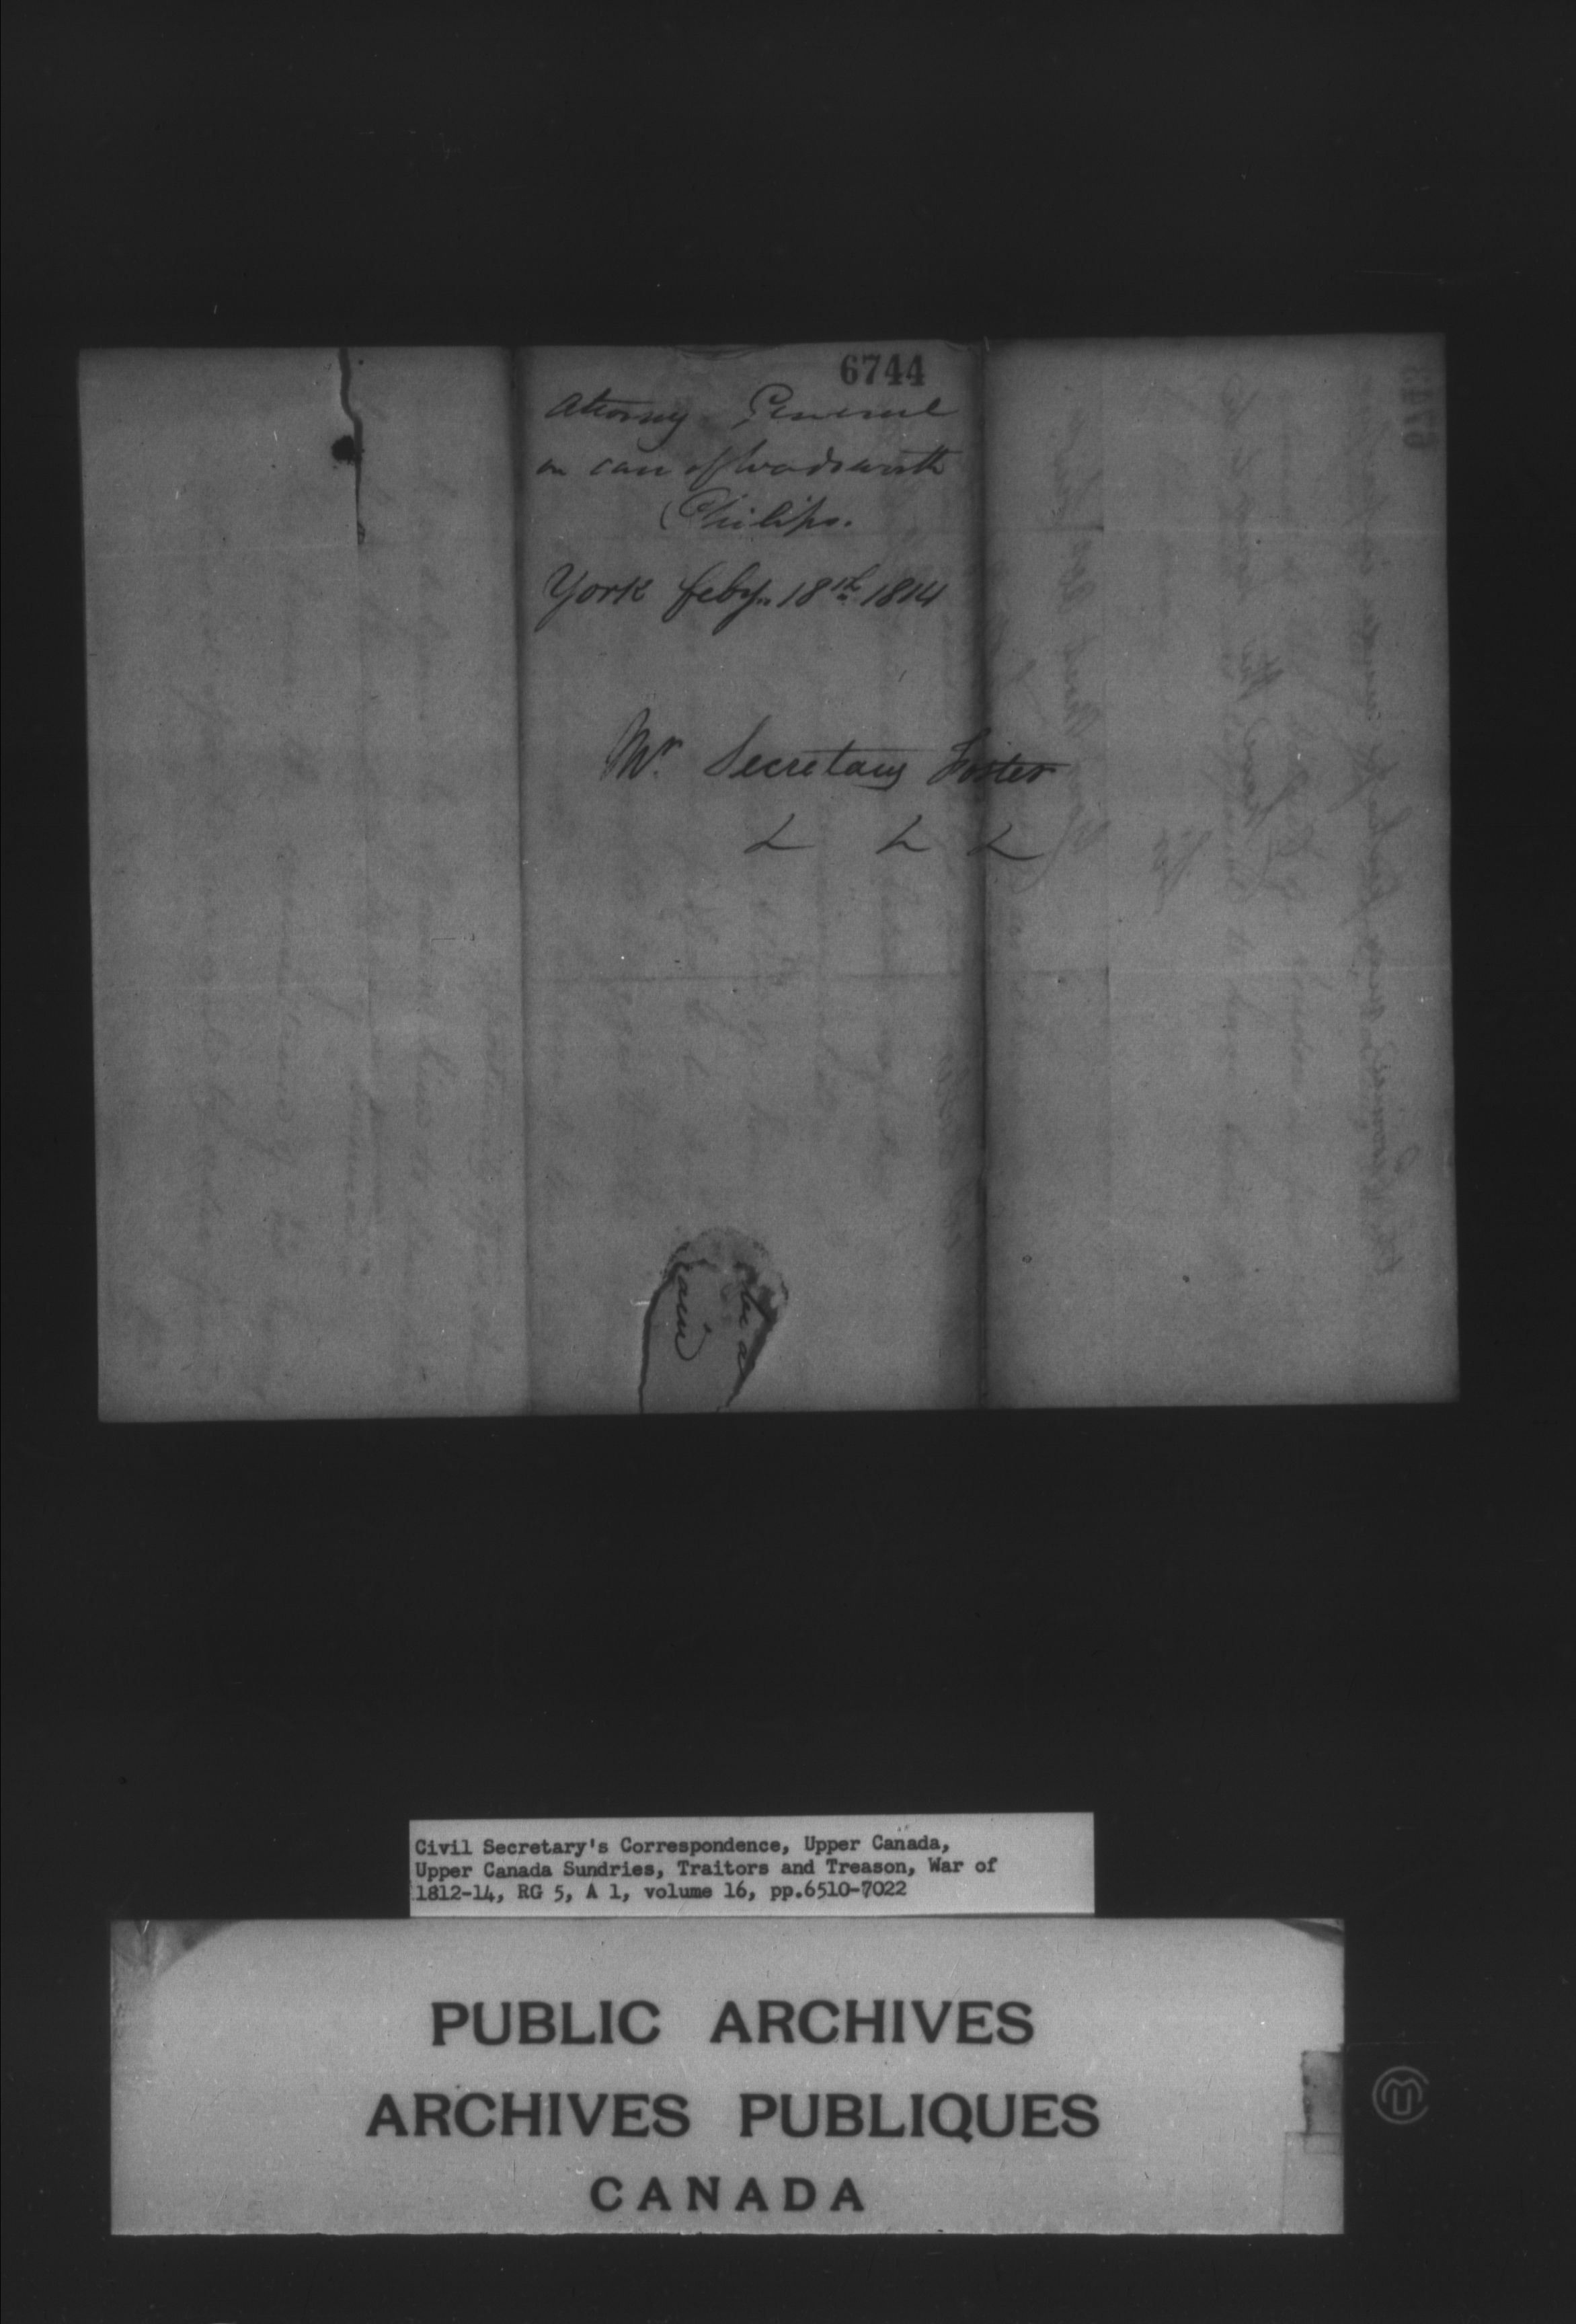 6744
Attorney General
on case of Wadsworth
Philips.
York feby. 18th 1814
Mr. Secretary Foster
Civil Secretary's Correspondence, Upper Canada,
Upper Canada Sundries, Traitors and Treason, War of
1812-14, RG 5, A 1, volume 16, pp.6510-7022
PUBLIC ARCHIVES
ARCHIVES PUBLIQUES
CANADA